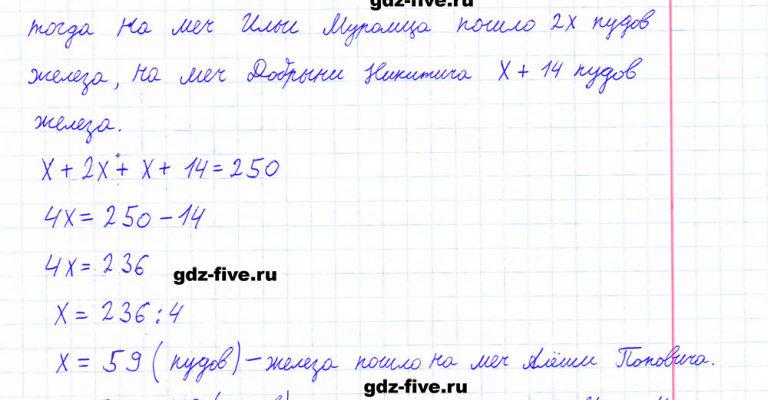 gdz-five.ru
тогда на меч Ильи Муромца пошло 2х пудов
железа, на меч Добрыни Никитича х + 14 пудов
железа.
х + 2х + х + 14 = 250
4х = 250 - 14
4х = 236
gdz-five.ru
х = 236 : 4
х = 59 (пудов) - железа пошло на меч Алёши Поповича.
gdz-five.ru